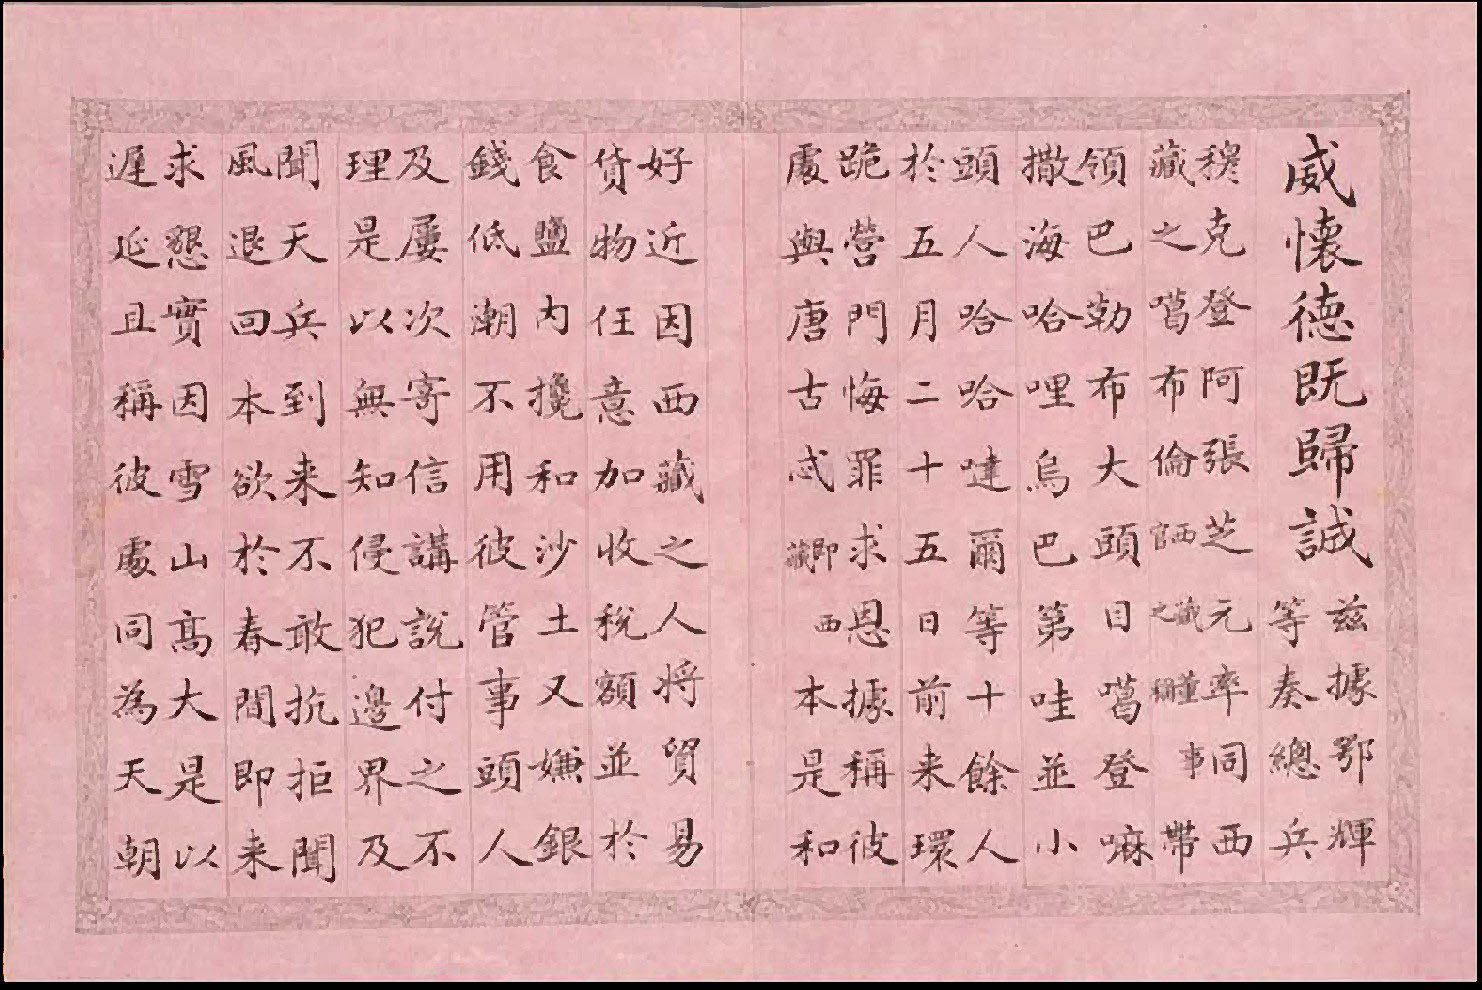 威懷德既歸誠
兹據鄂輝
等奏總兵
穆克登阿張芝元率同西
藏之噶布倫西藏董事官之稱帶
領巴勒布大頭目噶登嘛
撒海哈哩烏巴第哇並小
頭人哈哈噠爾等十餘人
於五月二十五日前来環
跪營門悔罪求恩據稱彼
處與唐古忒即西藏本是和
好近因西藏之人將貿易
貨物任意加收稅額並於
食鹽内攙和沙土又嫌銀
錢低潮不用彼管事頭人
及屢次寄信講說付之不
理是以無知侵犯邊界及
聞天兵到来不敢抗拒聞
風退回本欲於春間即来
求懇實因雪山髙大是以
遲延且稱彼處同為天朝